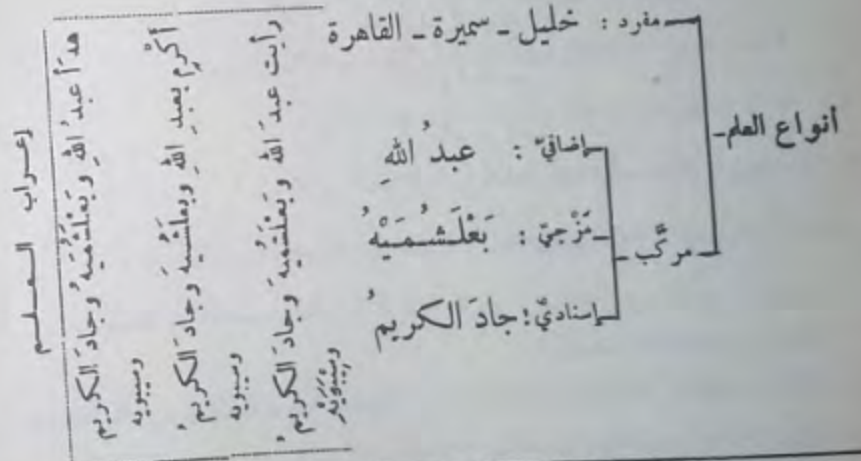 أنواع العلم
مفرد : خليل - سميرة - القاهرة
مركَّب
إضافيّ : عبدُ اللهِ
مَزْجيّ : بَعْلَشُمَيْهُ
إسناديّ : جادَ الكريمُ
إعراب العلم
هذا عبدُ اللهِ وبَعْلَشُمَيْهُ وجادَ الكريم
وسيبويه
أكْرِم بعبدِ اللهِ وبعلَشُميةَ وجادَ الكريمُ
وسيبويه
رأيت عبدَ اللهِ وبَعْلَشُميةَ وجادَ الكريمُ
وسيبويه